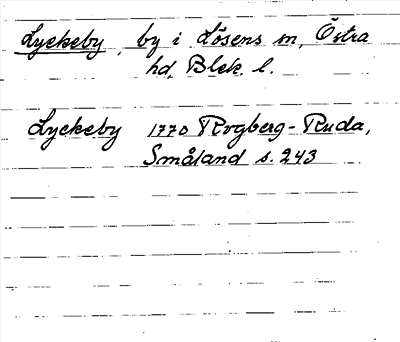 Lyckeby, by i Lösens sn, Östra
hd, Blek. l.
Lyckeby 1770 Rogberg-Ruda,
Småland s. 243